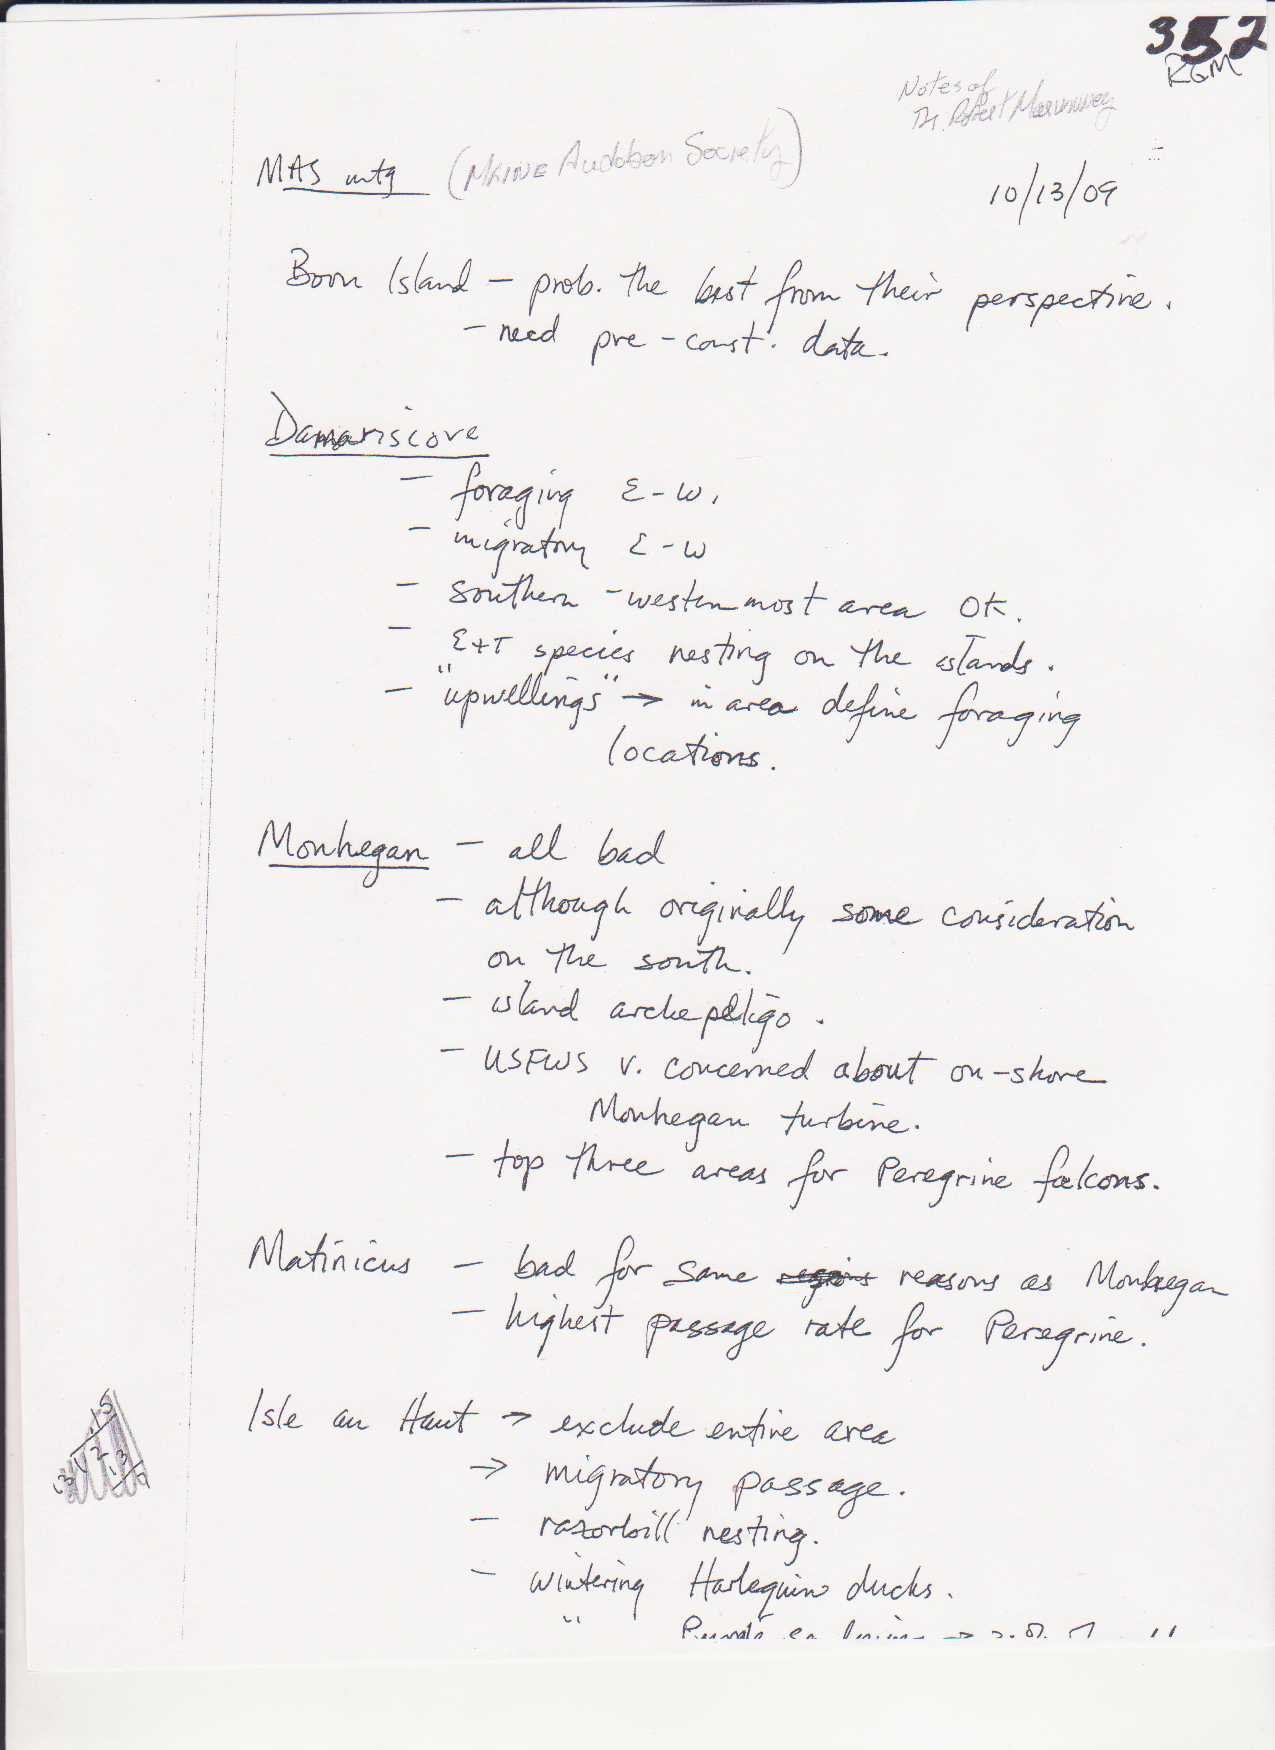 352
RGM
Notes of
Dr. Robert
MAS mtg (MAINE Audobon Society)
10/13/09
Boon Island - prob. the best from their perspective.
- need pre-const. data.
Damariscove
- foraging E-W.
- migratory E-W
- southern - westernmost area OK.
- E+T species nesting on the islands.
- "upwellings" → in area define foraging
locations.
Monhegan - all bad
- although originally some consideration
on the south.
- island archepeligo.
- USFWS v. concerned about on-shore
Monhegan turbine.
- top three areas for Peregrine falcons.
Matinicus - bad for same regions reasons as Monhegan
- highest passage rate for Peregrine.
Isle au Haut → exclude entire area
→ migratory passage.
- razorbill nesting.
- wintering Harlequin ducks.
"